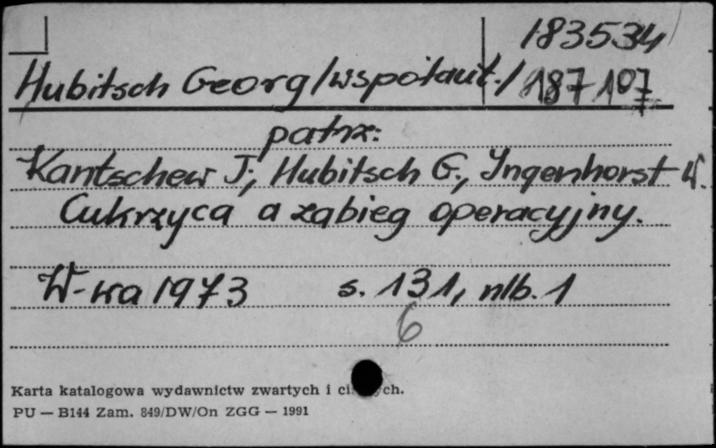 183534
Hubitsch Georg /współaut./ 187107
patrz:
Kantschew J., Hubitsch G., Ingenhorst W.
Cukrzyca a zabieg operacyjny.
W-wa 1973 s. 131, nlb. 1
6
Karta katalogowa wydawnictw zwartych i ch.
PU — B144 Zam. 849/DW/On ZGG — 1991